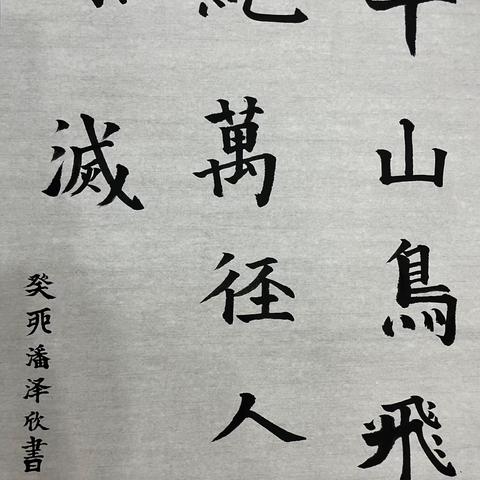 千山鳥飛
萬徑人
滅
癸卯潘泽欣書